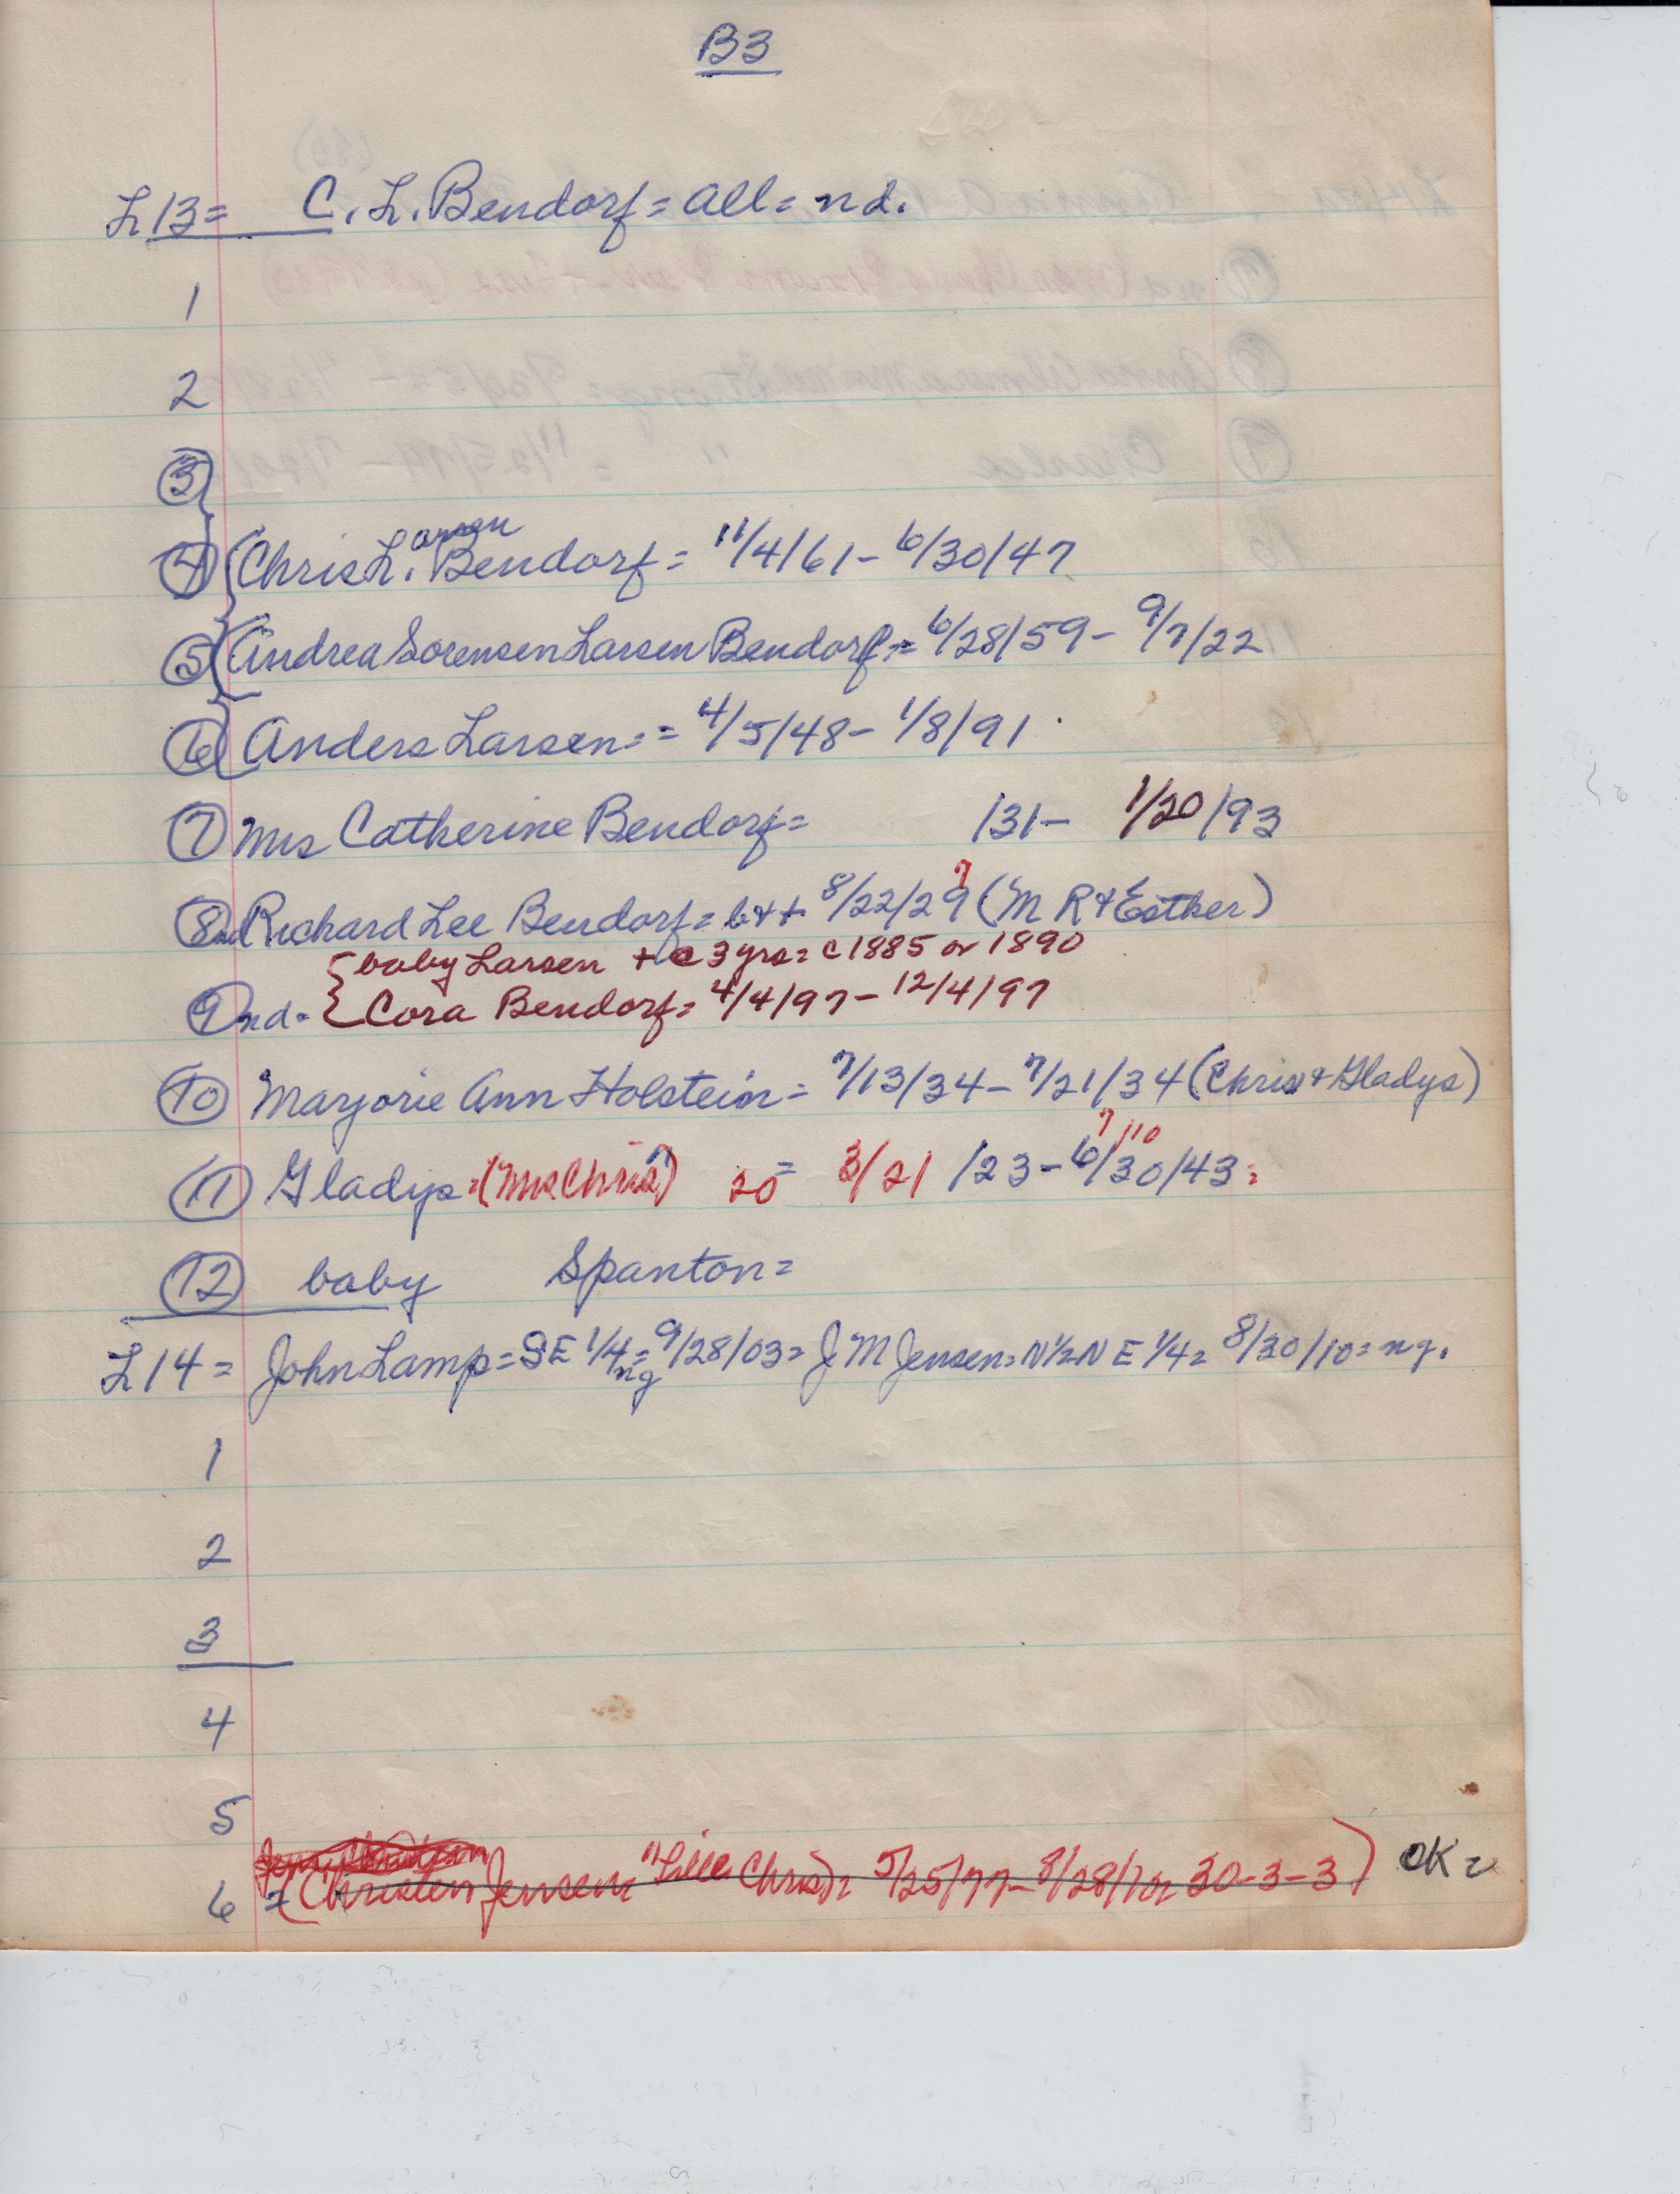 B3
L13= C. L. Bendorf = all = nd.
1
2
③
④ Chris L. arsen Bendorf = 11/4/61 - 6/30/47
⑤ Andrea Sorensen Larsen Bendorf = 6/28/59 - 9/7/22
⑥ Anders Larsen = = 4/5/48 - 1/8/91
⑦ Mrs Catherine Bendorf = /31 - 1/20/93
⑧ nd Richard Lee Bendorf = b++ 8/22/29 7 (M R + Esther)
baby Larsen + c 3 yrs = c 1885 or 1890
⑨ nd = Cora Bendorf = 4/4/97 - 12/4/97
⑩ Marjorie Ann Holstein = 7/13/34 - 7/21/34 (Chris + Gladys)
7/10
⑪ Gladys = (Mrs Chris) 20 = 3/21 /23 - 6/30/43 =
⑫ baby Spanton =
L14 = John Lamp = SE 1/4 = ng 9/28/03 = J M Jensen = N 1/2 N E 1/4 = 8/30/10 = ng.
1
2
3
4
5
6 = (Christen Jensen "Lille Chris) = 5/25/77 - 8/28/7 or 30-3-3) OK =